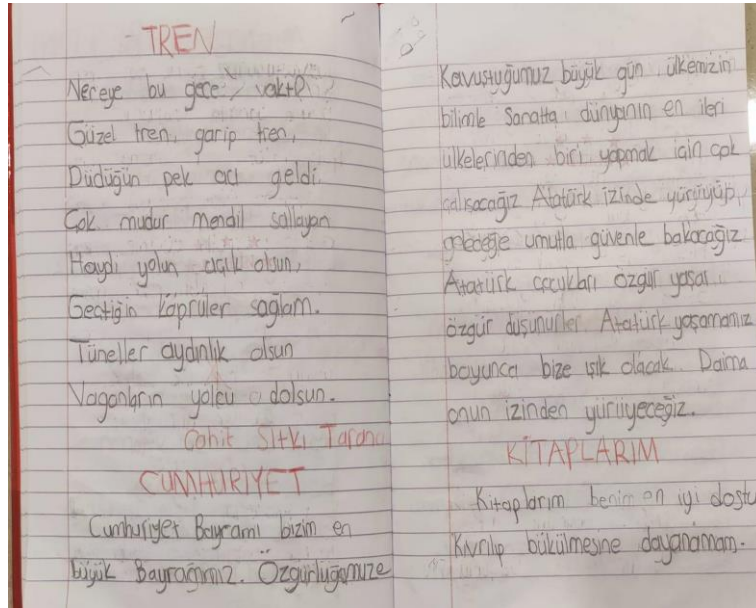 TREN
Nereye bu gece vakti?
Güzel tren, garip tren,
Düdüğün pek acı geldi.
Çok mudur mendil sallayan
Haydi yolun açık olsun,
Geçtiğin köprüler sağlam.
Tüneller aydınlık olsun
Vagonların yolcu dolsun.
Cahit Sıtkı Tarancı
CUMHURİYET
Cumhuriyet Bayramı bizim en
büyük Bayramımız. Özgürlüğümüze
Kavuştuğumuz büyük gün, ülkemizin
bilimle Sanatta dünyanın en ileri
ülkelerinden biri yapmak için çok
çalışacağız Atatürk izinde yürüyüp,
geleceğe umutla güvenle bakacağız
Atatürk çocukları özgür yaşar
özgür düşünürler Atatürk yaşamamız
boyunca bize ışık olacak. Daima
onun izinden yürüyeceğiz.
KİTAPLARIM
Kitaplarım benim en iyi dostu
Kıvrılıp bükülmesine dayanamam.